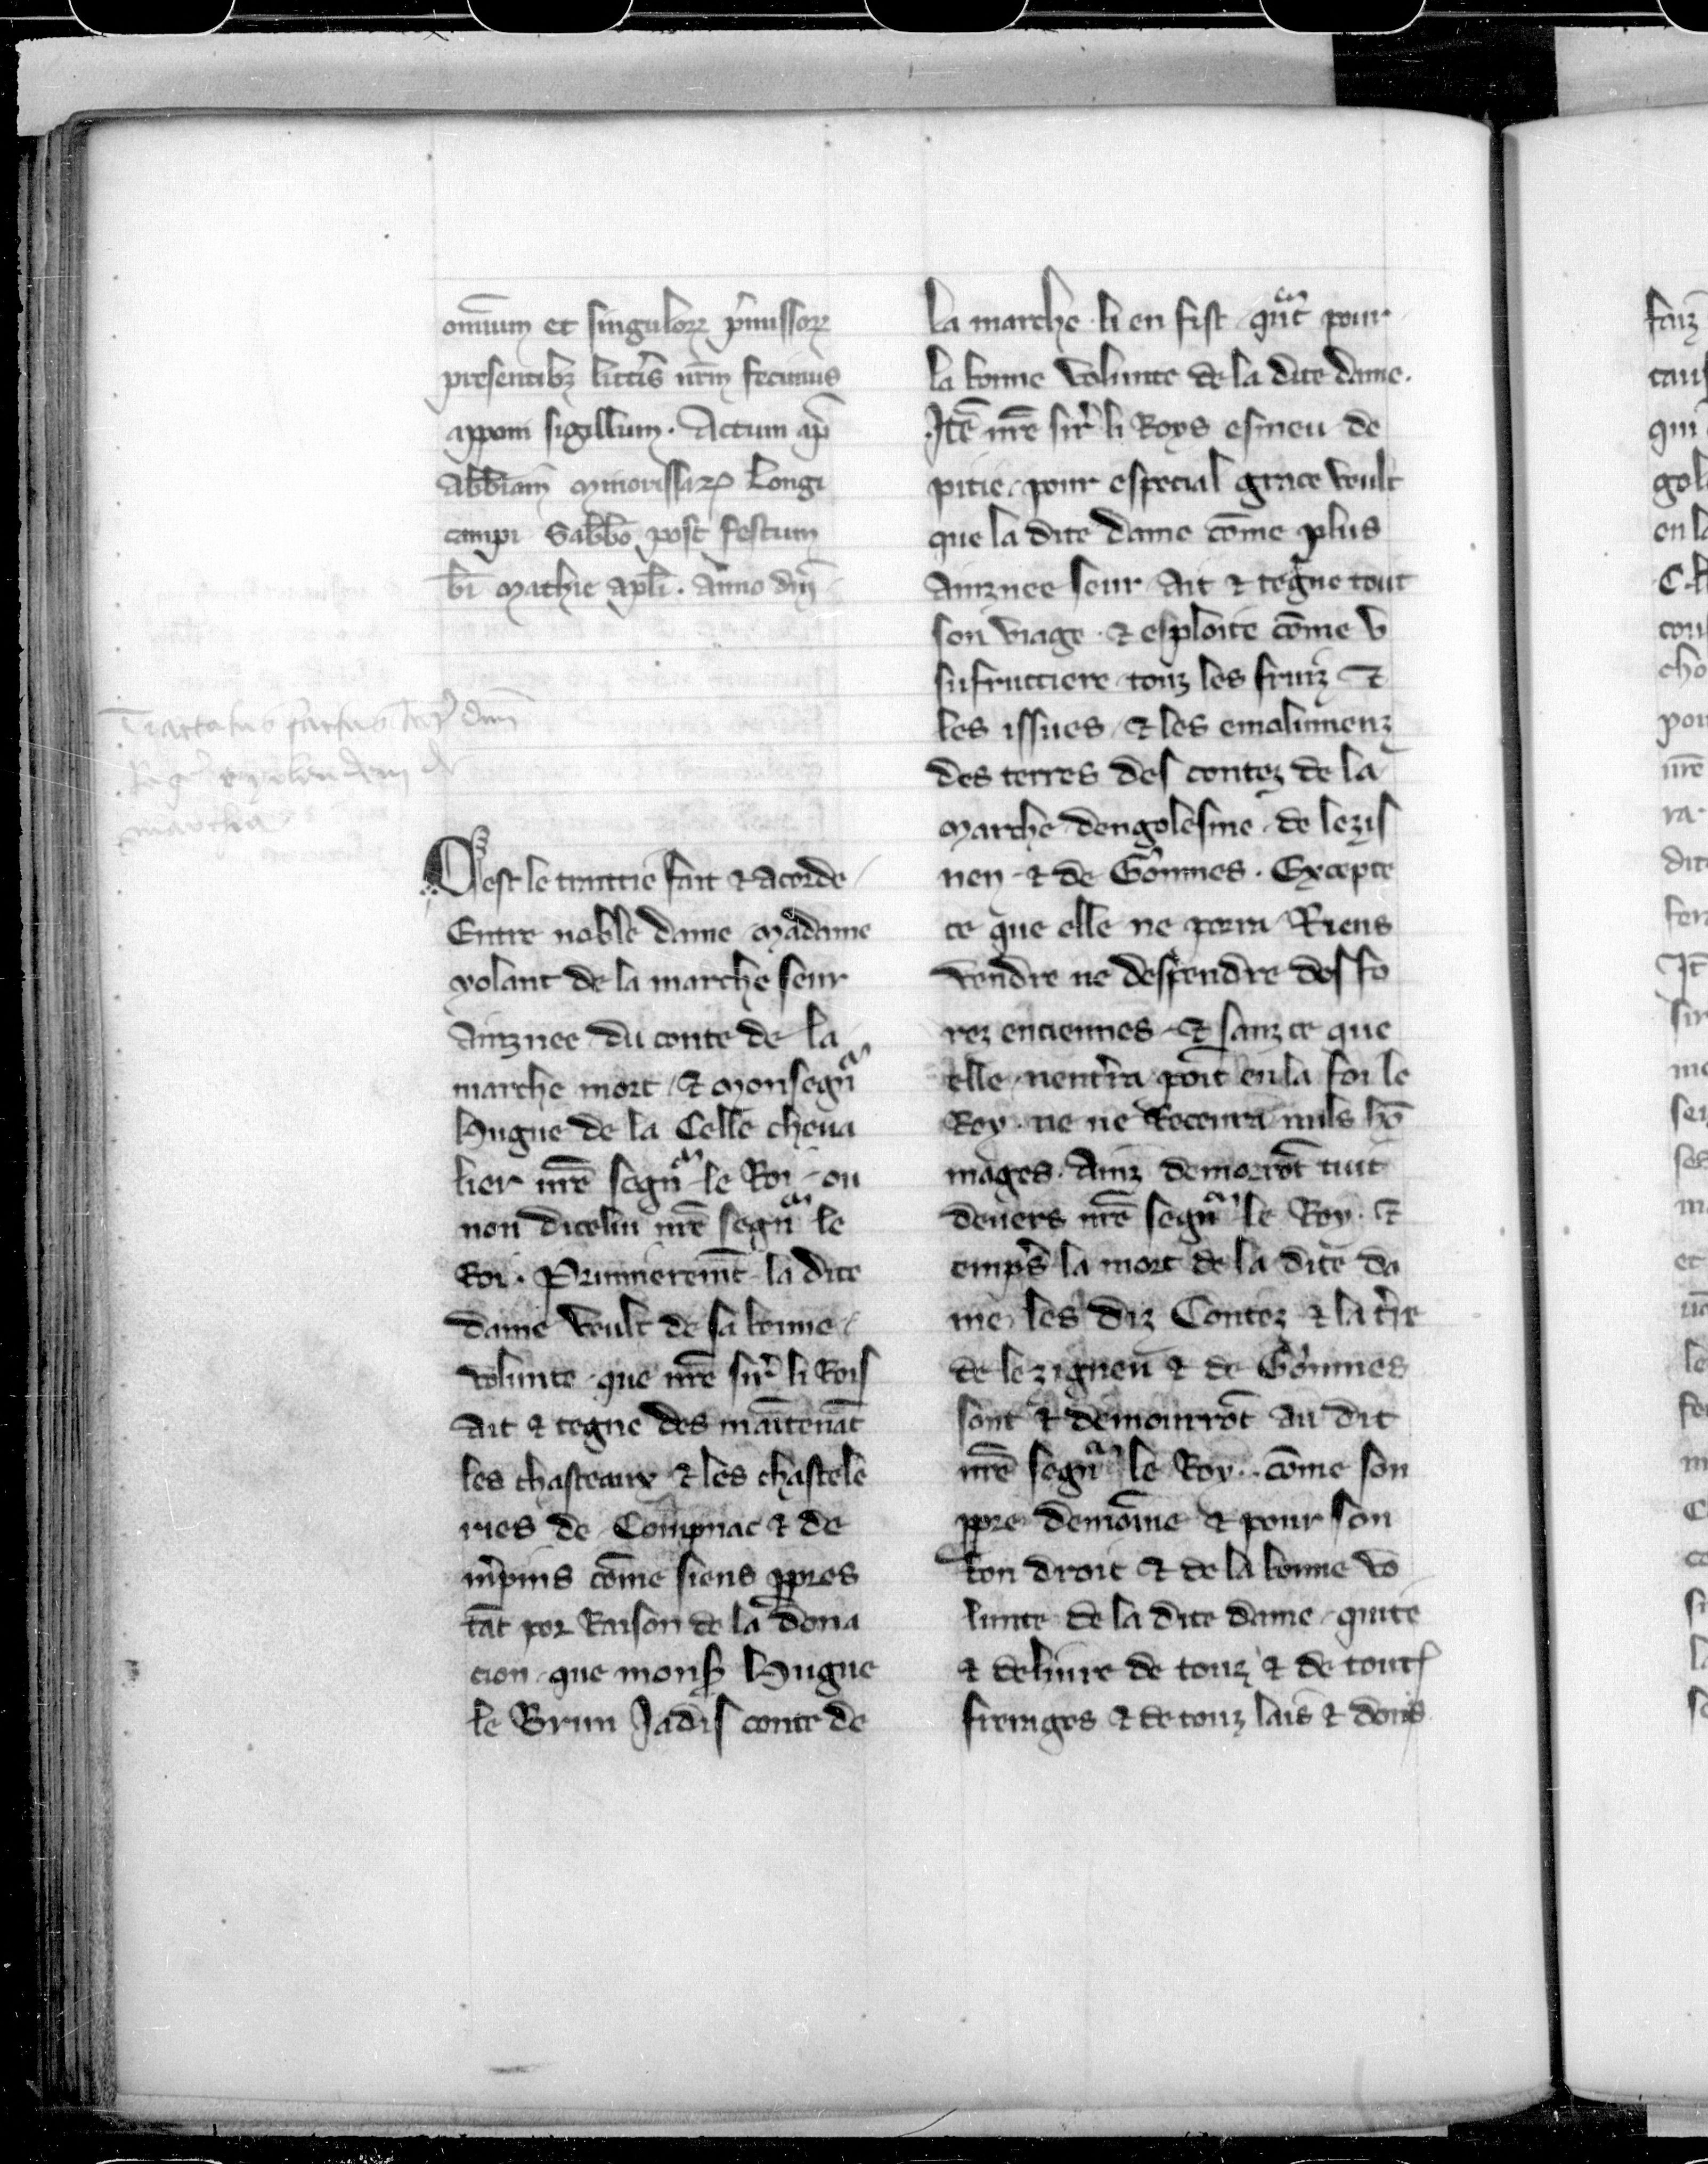 om̄ium et singuloꝝ p̄missoꝝ
presentibꝫ litt̄is nr̄m fecimus
apponi sigillum. Actum ap̄
Abb̄iam Minorissaꝝ Longi
campi Sabb̄o post festum
bī Mathie apl̄i. Anno dn̄i
Tractatus factus int̄ dn̄m
Reḡ
marchia
C'est le traittie fait & acorde
Entre noble dame Madame
yolant de la marche seur
Ainznee du conte de la
marche mort & Monsegn̄r
Hugue de la Celle cheua
lier nr̄e segn̄r le Roi ou
non dicelui nr̄e segn̄r le
Roi. Primierem̄t la dite
dame veult de sa bonne
volunte que nr̄e sir̄ li Rois
Ait & tegne des maītenāt
les chasteaux & les chastele
ries de Compnac & de
m̄pins cōme siens ꝓpres
tāt por Raison de la dona
cion que monsꝭ Hugue
le Brun Jadis conte de
la marche li en fist quāt pour
la bonne volunte de la dite dame.
Itē nr̄e sir̄ li Roys esmeu de
pitie pour especial grace veult
que la dite dame cōme plus
Ainznee seur Ait & tegne tout
son viage & esploite cōme v
sufructiere touz les fruiz &
les issues & les emolumenz
des terres des contez de la
Marche dengolesme de lezis
nen & de Gōmies. Excepte
ce que elle ne porra Riens
vendre ne despendre des fo
rez enciennes & sanz ce que
elle nent̄ra poīt en la foi le
Roy ne ne Receura nuls hō
mages. Ainz demorrōt tuit
deuers nr̄e segn̄r le Roy. &
emp̄s la mort de la dite da
me les diz Contez & la t̄re
de lezignen & de Gōmies
sont & demourrōt au dit
nr̄e segn̄r le Roy. cōme son
ꝓpre demoīne & pour son
bon droit & de la bonne vo
lunte de la dite dame quite
& deliure de touz & de toutꝭ
freniges & de touz lais & dons